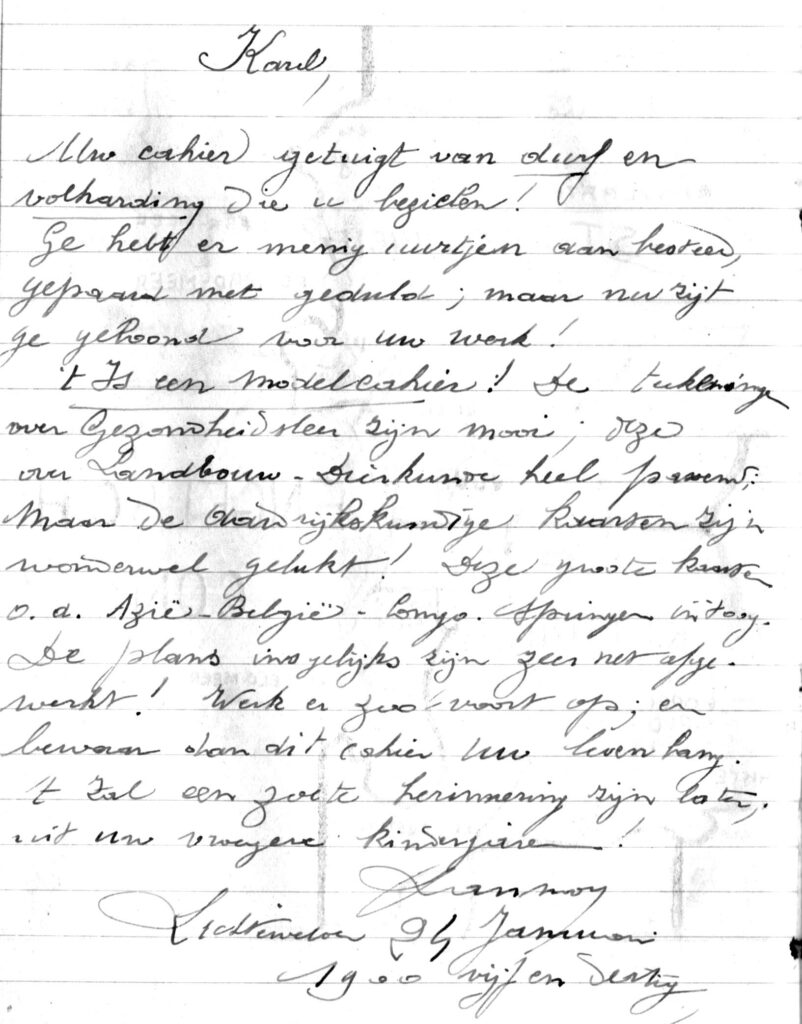 Karel,
Uw cahier getuigt van durf en
volharding die u bezielen!
Ge hebt er menig uurtjen aan besteed,
gepaard met geduld; maar nu zijt
ge geloond voor uw werk!
't Is een modelcahier! De tekeningen
over Gezondheidsleer zijn mooi; deze
over Landbouw - Dierkunde heel passend;
Maar de aardrijkskundige kaarten zijn
wonderwel gelukt! Deze groote kaarten
o.a. Azië - België - Congo. springen in 't oog.
De plans insgelijks zijn zeer net afge-
werkt! Werk er zoo voort op; en
bewaar dan dit cahier uw leven lang.
't Zal een zoete herinnering zijn later,
uit uw vroegere kinderjaren!
Lannoy
Lichtervelde 24 Januari
1900 vijf en dertig